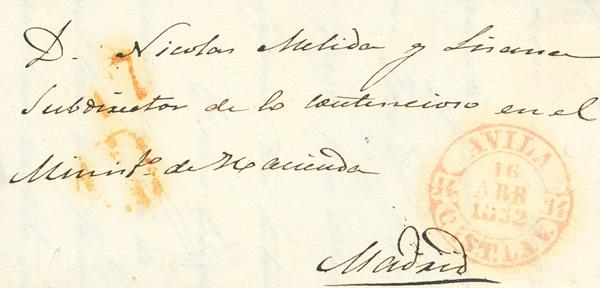 D. Nicolas Melida y Lisana
Subdirector de lo contencioso en el
Minist.o de Hacienda
Madrid
AVILA
16
ABR
1852
14
14
CAST.LA V.